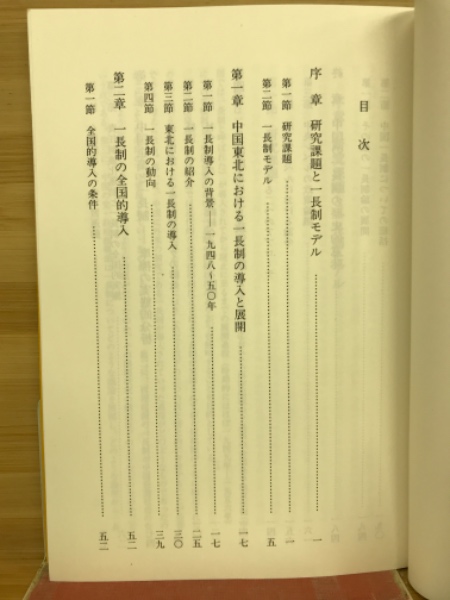 目次
序章 研究課題と一長制モデル……一
第一節 研究課題……一
第二節 一長制モデル……五
第一章 中国東北における一長制の導入と展開……一七
第一節 一長制導入の背景——一九四八~五〇年……一七
第二節 一長制の紹介……二五
第三節 東北における一長制の導入……三〇
第四節 一長制の動向……三九
第二章 一長制の全国的導入……五二
第一節 全国的導入の条件……五二